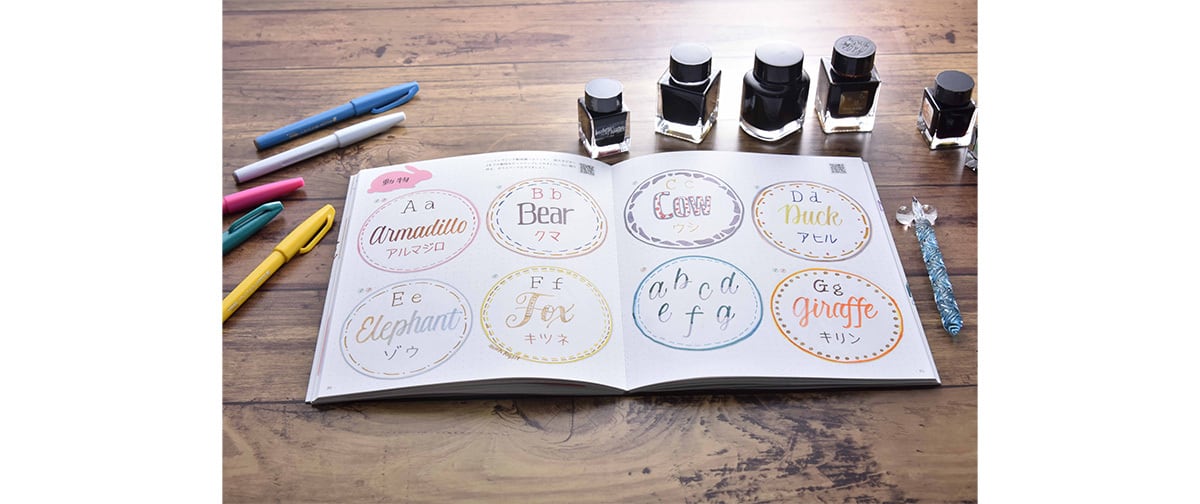 動物
A a
Armadillo
アルマジロ
B b
Bear
クマ
C c
Cow
ウシ
D d
Duck
アヒル
E e
Elephant
ゾウ
F f
Fox
キツネ
a b c d
e f g
G g
giraffe
キリン